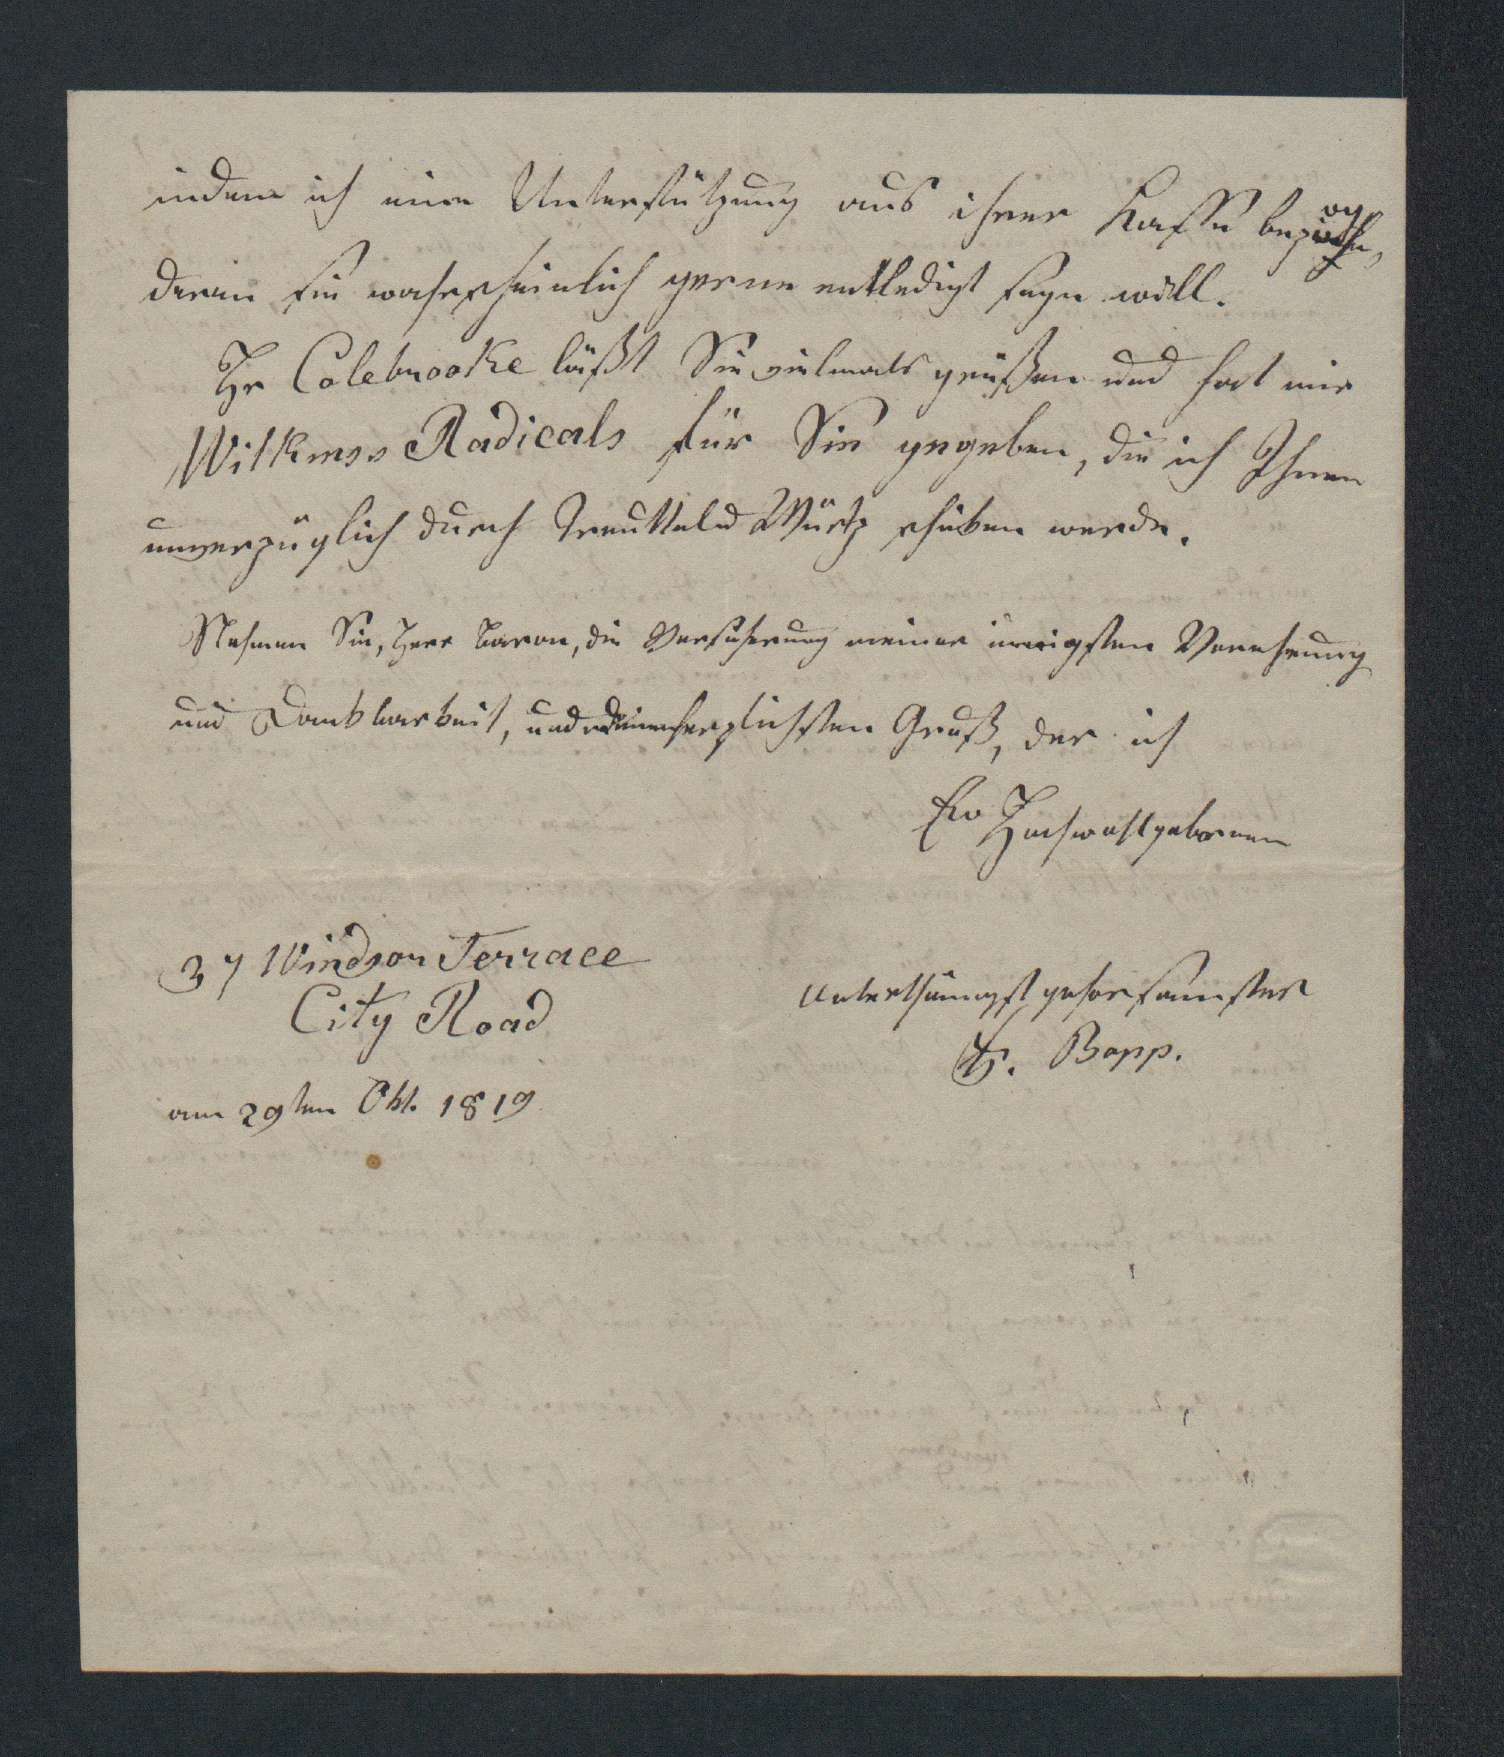 indem ich eine Unterstützung aus ihrer Kasse bezog,
deren sie wahrscheinlich gerne entledigt seyn will.
Hr Colebrooke läßt Sie vielmals grüßen und hat mir
Wilkins's Radicals für Sie gegeben, die ich Ihnen
unverzüglich durch Treuttel u Würtz schicken werde.
Nehmen Sie, Herr Baron, die Versicherung meiner innigsten Verehrung
und Dankbarkeit, und meinen herzlichsten Gruß, der ich
Ew Hochwohlgeboren
37 Windsor Terrace
City Road
am 29ten Okt. 1819
unterthänigst gehorsamster
F. Bopp.